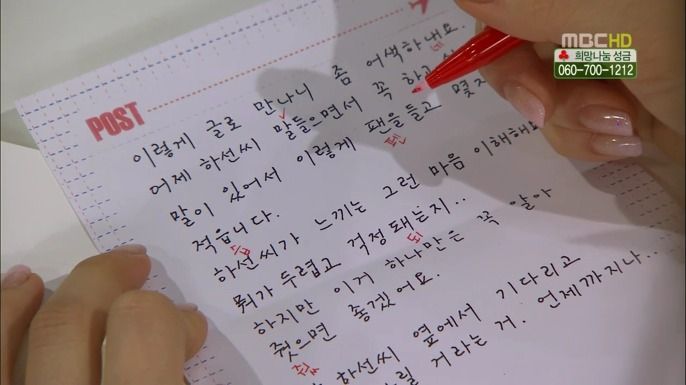 MBC HD
희망나눔 성금
060-700-1212
POST
이렇게 글로 만나니 좀 어색하내요.
네
어제 하선씨 말들으면서 꼭 하고
말이 있어서 이렇게 팬을들고 몇자
펜
적읍니다.
습
하선씨가 느끼는 그런 마음 이해해요
뭐가 두렵고 걱정돼는지..
되
하지만 이거 하나만은 꼭 알아
줬으면 좋겠어요.
하선씨 옆에서 기다리고
거라는 거. 언제까지나...